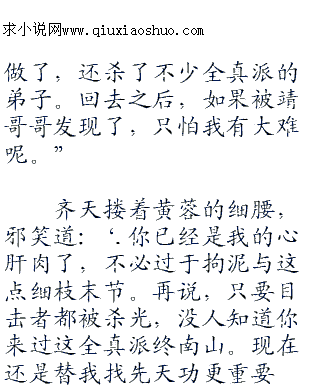 求小说网www.qiuxiaoshuo.com
做了，还杀了不少全真派的
弟子。回去之后，如果被靖
哥哥发现了，只怕我有大难
呢。”
齐天搂着黄蓉的细腰，
邪笑道：‘.你已经是我的心
肝肉了，不必过于拘泥与这
点细枝末节。再说，只要目
击者都被杀光，没人知道你
来过这全真派终南山。现在
还是替我找先天功更重要